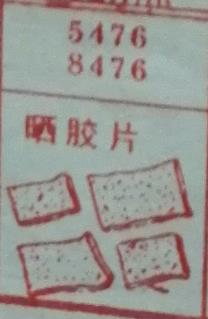 5476
8476
晒胶片